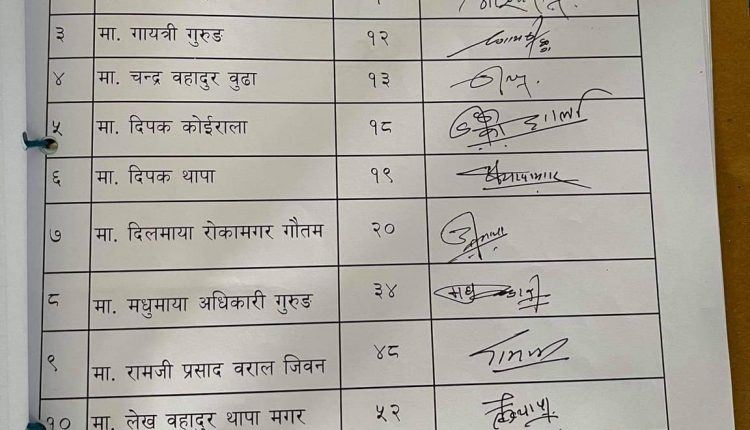 ३ मा. गायत्री गुरुङ १२
४ मा. चन्द्र वहादुर वुढा १३
५ मा. दिपक कोईराला १८
६ मा. दिपक थापा १९
७ मा. दिलमाया रोकामगर गौतम २०
८ मा. मधुमाया अधिकारी गुरुङ ३४
९ मा. रामजी प्रसाद वराल जिवन ४८
१० मा. लेख वहादुर थापा मगर ५२